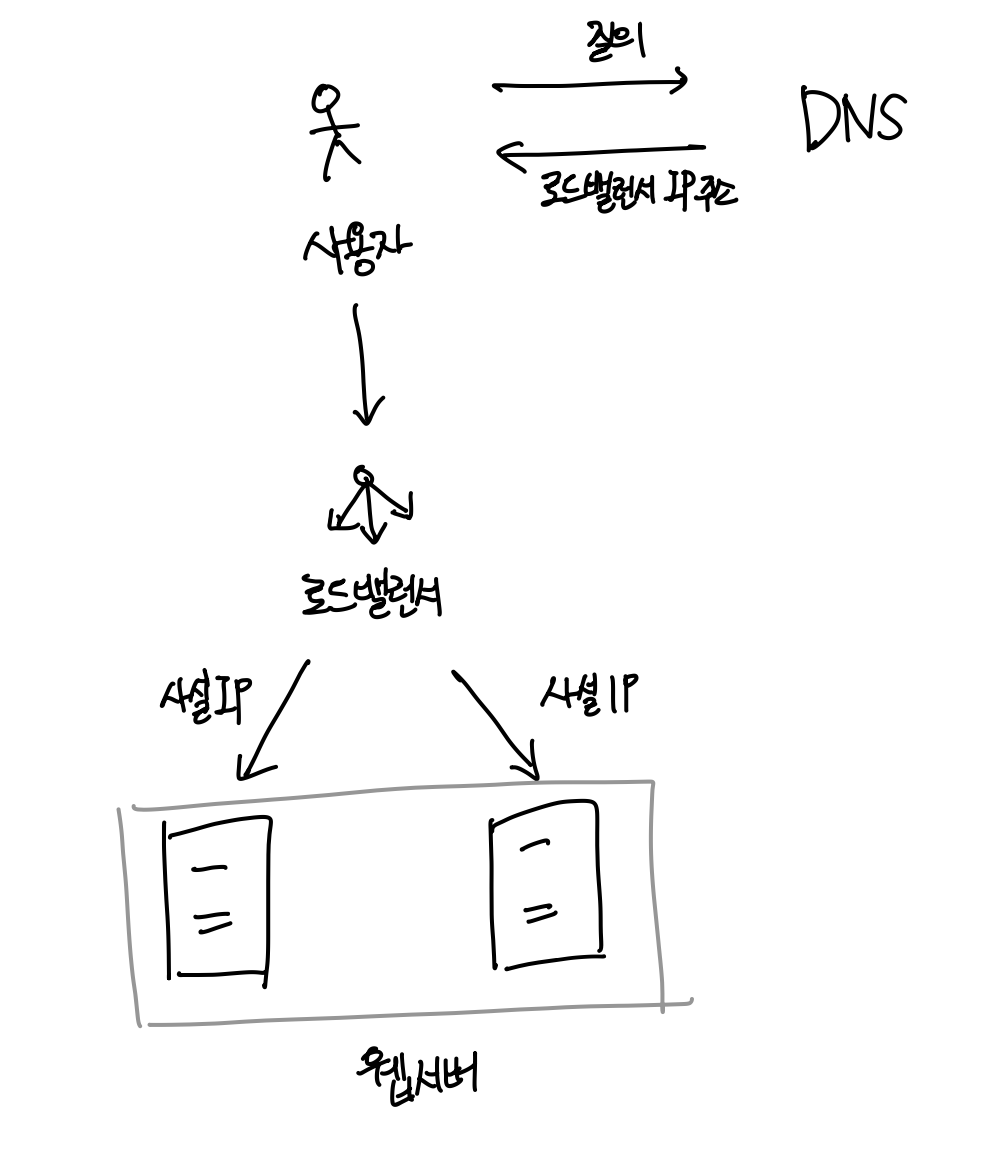 질의
DNS
로드밸런서 IP 주소
사용자
로드밸런서
사설 IP
사설 IP
웹서버